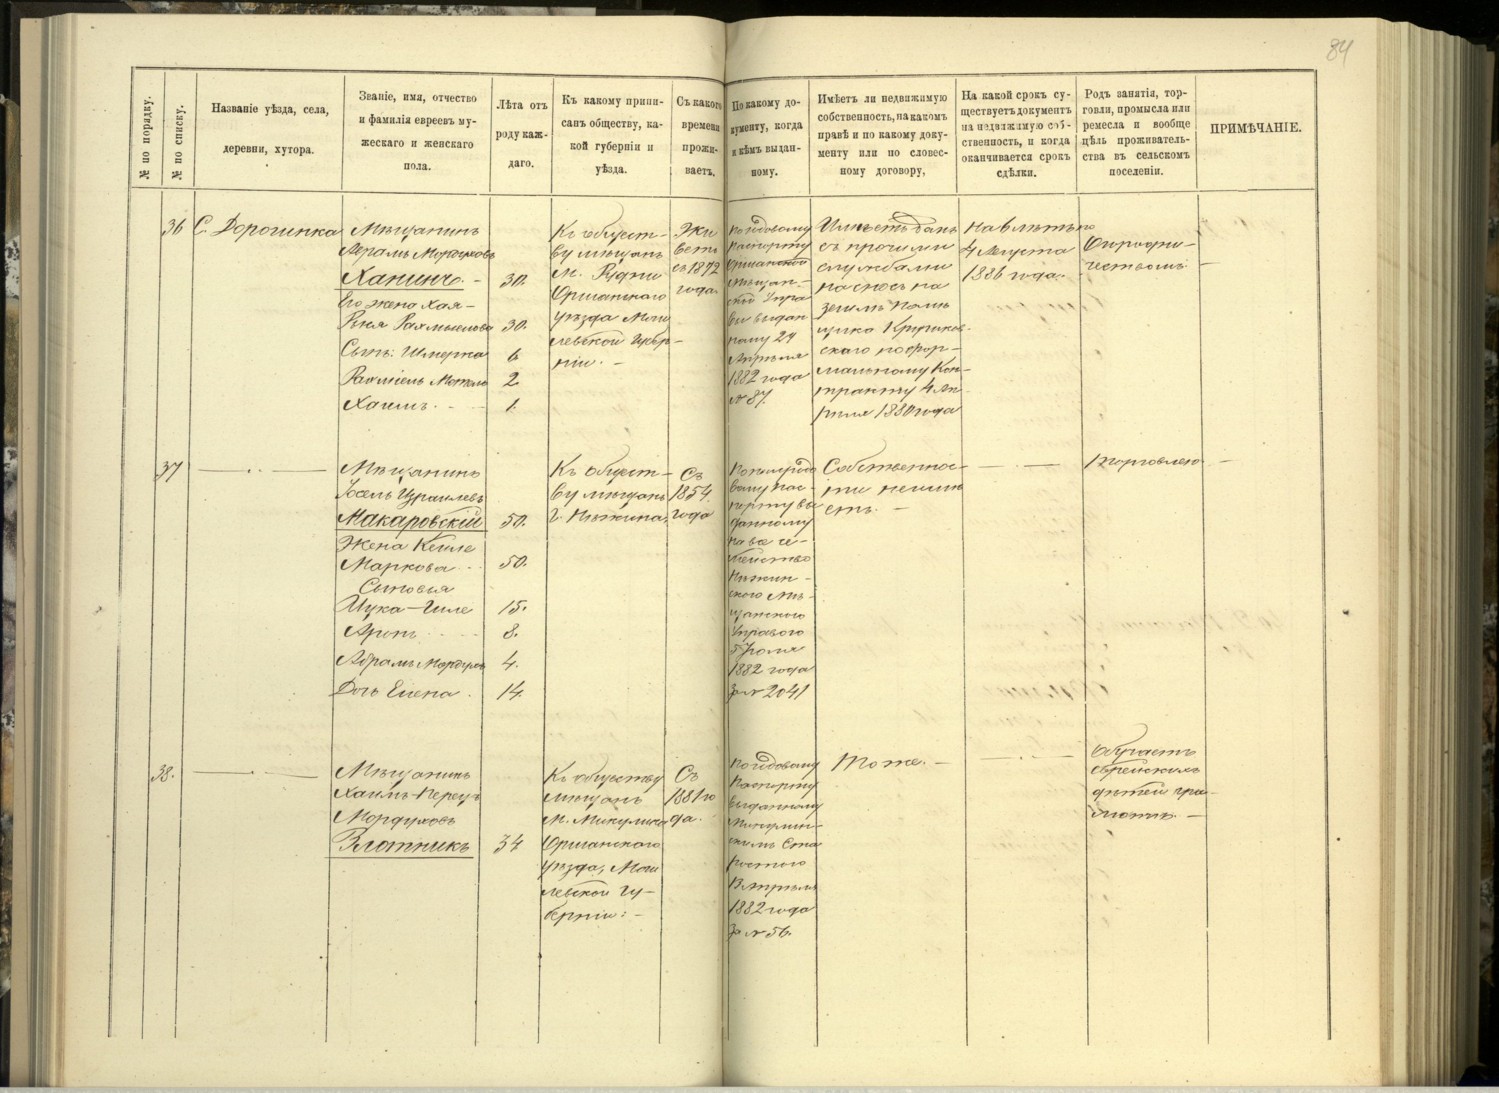 84
№ по порядку.
№ по списку.
Названіе уѣзда, села,
деревни, хутора.
Званіе, имя, отчество
и фамилія евреевъ му-
жескаго и женскаго
пола.
Лѣта отъ
роду каж-
даго.
Къ какому припи-
санъ обществу, ка-
кой губерніи и
уѣзда.
Съ какого
времени
прожи-
ваетъ.
По какому до-
кументу, когда
и кѣмъ выдан-
ному.
Имѣетъ ли недвижимую
собственность, на какомъ
правѣ и по какому доку-
менту или по словес-
ному договору.
На какой срокъ су-
ществуетъ документъ
на недвижимую соб-
ственность, и когда
оканчивается срокъ
сдѣлки.
Родъ занятія, тор-
говли, промысла или
ремесла и вообще
цѣль проживатель-
ства въ сельскомъ
поселеніи.
ПРИМѢЧАНІЕ.
36
С. Дорогинка
Мѣщанинъ
Абрамъ Мордуховъ
Ханинъ. -
Его жена Хая-
Рыня Рахмиелова
Сынъ: Шмерка
Рахміель Мотель
Хаимъ. -
30.
30.
6
2.
1.
Къ общест-
ву мѣщанъ
м. Рудни
Оршанскаго
уѣзда Моги
левской Губер-
ніи. -
Жи
ветъ
съ 1872
года
По годовому
паспорту
Оршанской
мѣщан-
ской Упра
вы выдан
ному 24
Апрѣля
1882 года
№ 87.
Имѣетъ домъ
съ прочими
службами
на сносъ на
землѣ помѣ
щика
скаго по фор-
мальному Кон-
тракту 4 Ап-
рѣля 1880 года
На 6 лѣтъ по
4 Августа
1886 года.
ничествомъ. -
37
Мѣщанинъ
Іосель Израилевъ
Макаровскій
Жена Кейле
Маркова
Сыновья
Цука-Гиле
Аронъ
Абрамъ Мордухъ
Дочь Елена.
50.
50.
15.
8.
4.
14.
Къ общест-
ву мѣщанъ
г. Нѣжина,
Съ
1854.
года
По полугодо
вому пас-
порту вы
данному
на все се-
мейство
Нѣжин-
ского мѣ-
щанского
Управою
5 Іюля
1882 года
За № 2041
Собственнос-
ти не имѣ
етъ. -
Торговлею -
38.
Мѣщанинъ
Хаимъ-Перецъ
Мордуховъ
Злотникъ
34
Къ обществу
мѣщанъ
м. Микулино
Оршанскаго
уѣзда, Моги
левской Гу-
берніи: -
Съ
1881 го
да.
По годовому
паспорту
выданному
Микулин-
скимъ Ста
ростою
Апрѣля
1882 года
За № 56.
Тоже. -
Обучаетъ
еврейскихъ
дѣтей гра-
мотѣ. -